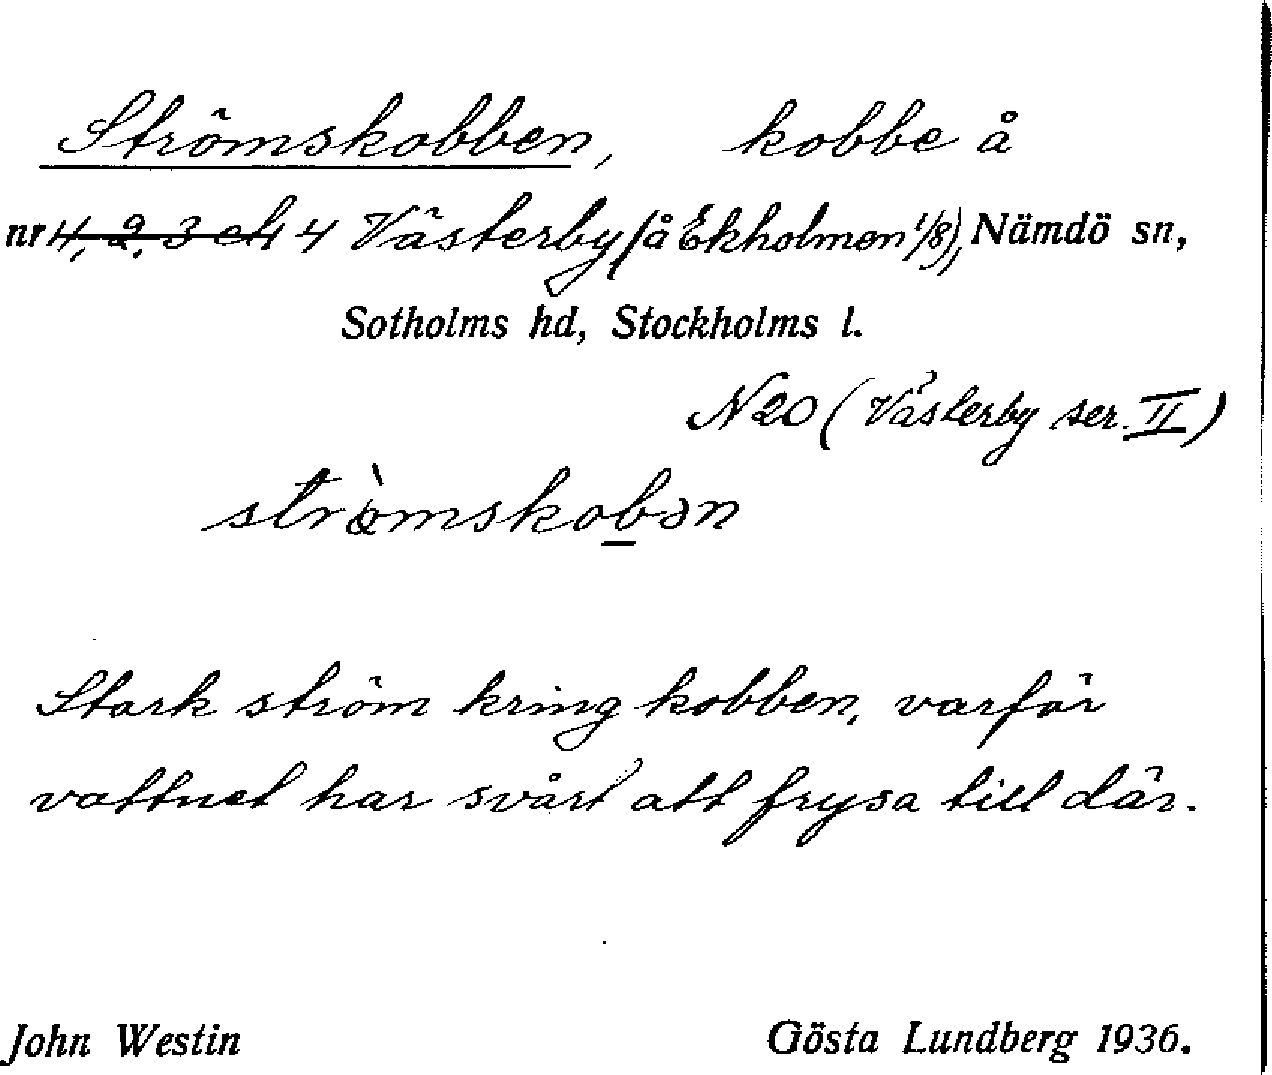 Strömskobben, kobbe å
nr 1, 2, 3 el 4 Västerby (å Ekholmen 1/8), Nämdö sn,
Sotholms hd, Stockholms l.
N 20 (Västerby ser. II)
strö̀mskobən
Stark ström kring kobben, varför
vattnet har svårt att frysa till där.
John Westin Gösta Lundberg 1936.